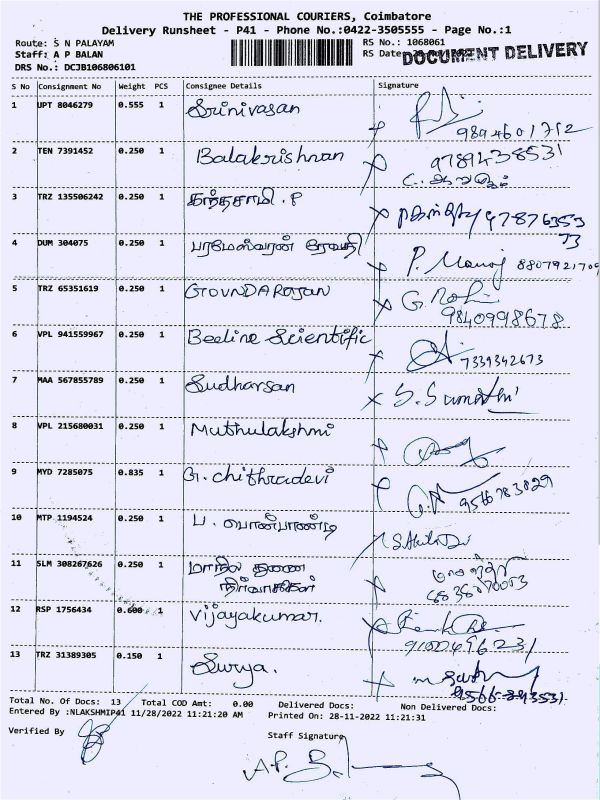 THE PROFESSIONAL COURIERS, Coimbatore
Delivery Runsheet - P41 - Phone No.:0422-3505555 - Page No.:1
Route: S N PALAYAM
RS No.: 1068061
Staff: A P BALAN
RS Date:
DOCUMENT DELIVERY
DRS No.: DCJB106806101
S No Consignment No Weight PCS Consignee Details Signature
1 UPT 8046279 0.555 1 Srinivasan
9894601712
2 TEN 7391452 0.250 1 Balakrishnan 9789438531
3 TRZ 135506242 0.250 1 கந்தசாமி . P 97876353
73
4 DUM 304075 0.250 1 பரமேஸ்வரன் ரேவதி P. Manoj 8807921709
5 TRZ 65351619 0.250 1 GOVNDARAJAN G. Mohi
9840998678
6 VPL 941559967 0.250 1 Beeline Scientific
7339342673
7 MAA 567855789 0.250 1 Sudharsan S. Sumathi
8 VPL 215680031 0.250 1 Muthulakshmi
9 MYD 7285075 0.835 1 G. chithradevi
9566783029
10 MTP 1194524 0.250 1 ப. பொன்பாண்டி
11 SLM 308267626 0.250 1 மாநில துணை
நிர்வாகிகள் 6838070053
12 RSP 1756434 0.600 1 Vijayakumar.
9100496231
13 TRZ 31389305 0.150 1 Surya.
9566-393531
Total No. Of Docs: 13 Total COD Amt: 0.00 Delivered Docs: Non Delivered Docs:
Entered By :NLAKSHMIP41 11/28/2022 11:21:20 AM Printed On: 28-11-2022 11:21:31
Verified By Staff Signature
A.P. B